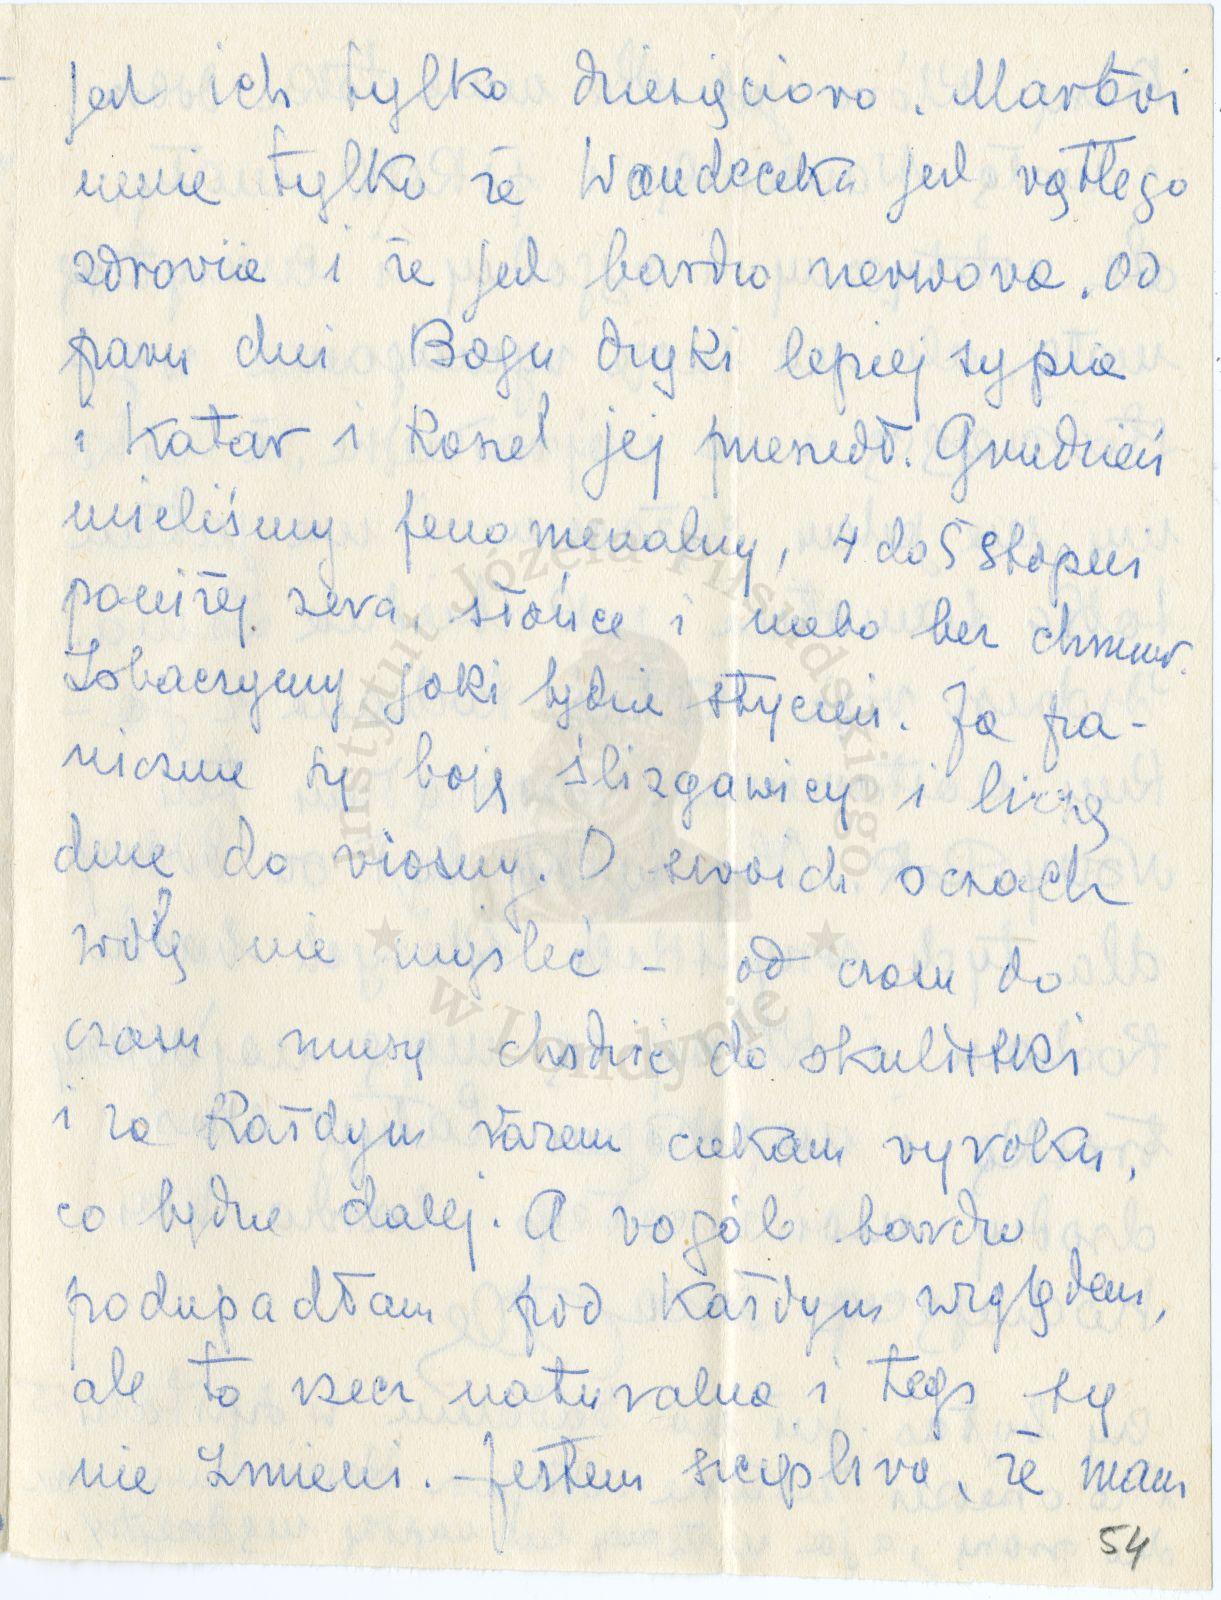 jest ich tylko dziesięcioro. Martwi
mnie tylko że Wandeczka jest wątłego
zdrowia i że jest bardzo nerwowa. Od
paru dni Bogu dzięki lepiej sypia
i Katar i Kaszel jej przeszedł. Grudzień
mieliśmy fenomenalny, 4 do 5 stopni
poniżej zera, słońce i niebo bez chmur.
Zobaczymy jaki będzie styczeń. Ja pa-
nicznie się boję ślizgawicy i liczę
dnie do wiosny. O swoich oczach
wolę nie myśleć – od czasu do
czasu muszę chodzić do okulistki
i za Każdym razem czekam wyroku,
co będzie dalej. A wogóle bardzo
podupadłam pod Każdym względem,
ale to rzecz naturalna i tego się
nie zmieni. Jestem szczęśliwa, że mam
54
Instytut Józefa Piłsudskiego
w Londynie